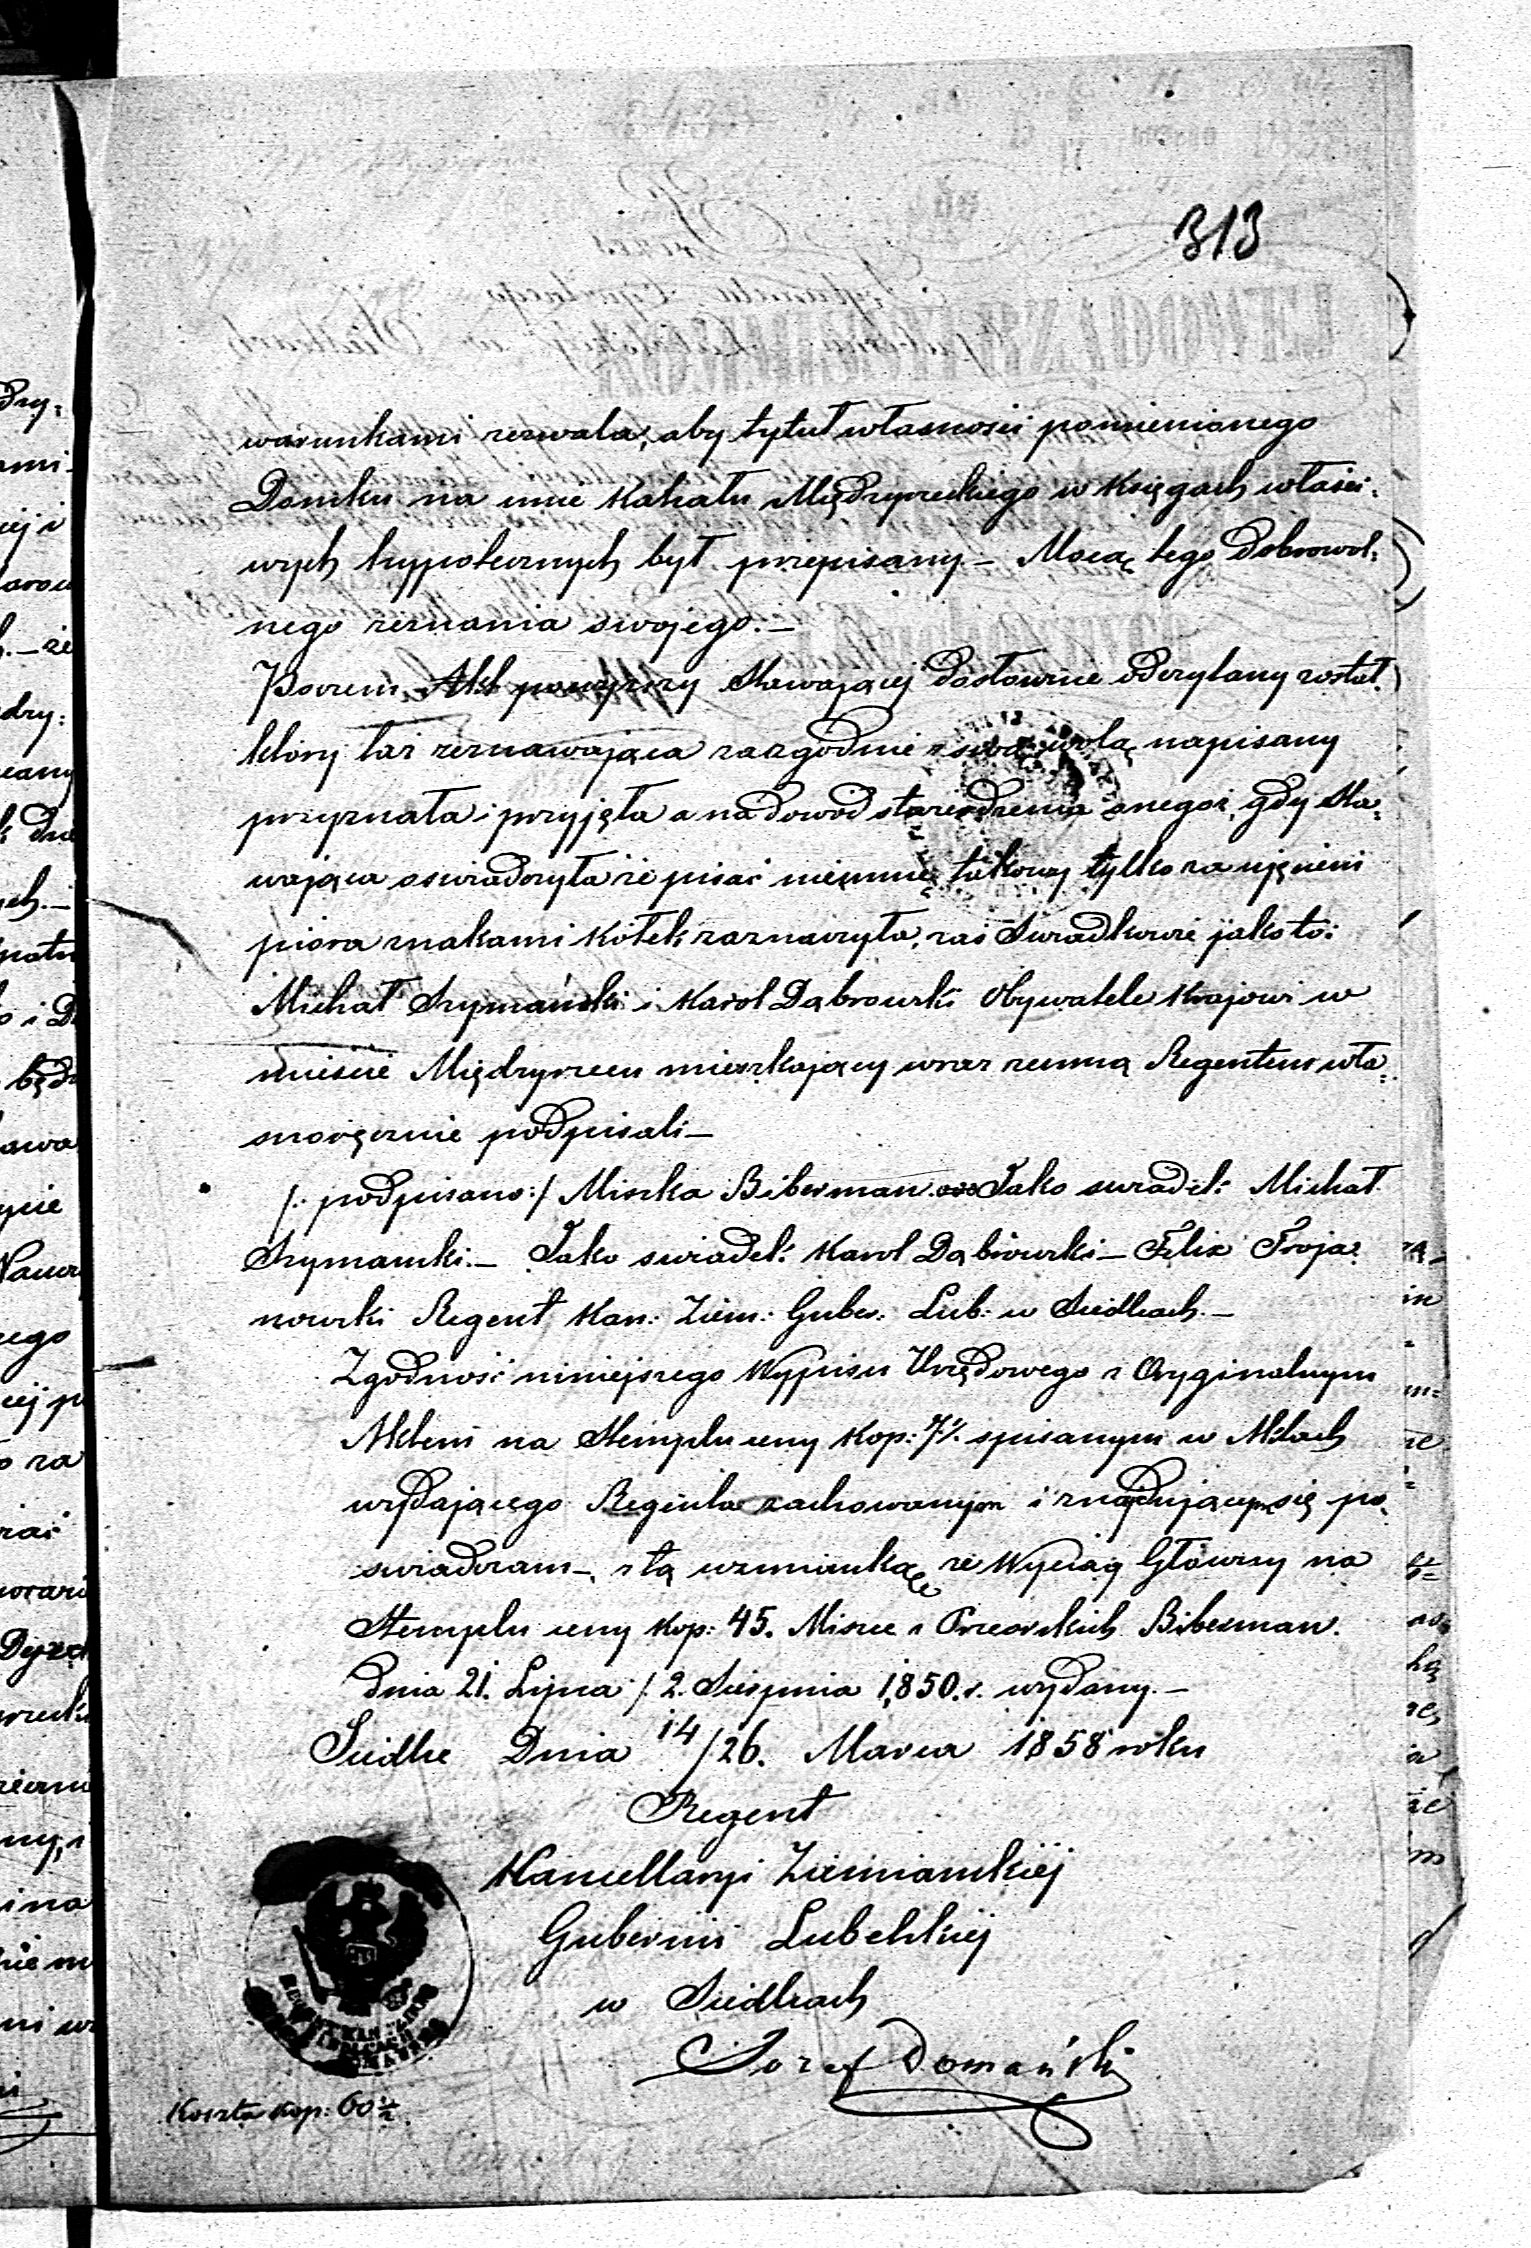 313
warunkami zezwala, aby tytuł własności pomienionego
Domku na imie Kahału Międzyrzeckiego w Księgach właści:
wych hypotecznych był przepisany. – Mocą tego dobrowol:
nego zeznania swojego. –
Poczem Akt powyższy Stawającej dosłownie odczytany został.
który taż zeznawająca za zgodnie z swą wolą napisany
przyznała i przyjęła a na dowód stwierdzenia onegoż, gdy Sta:
wająca oświadczyła iż pisać nieumie, takowy tylko za ujęciem
piora znakami Kółek zaznaczyła, zaś Swiadkowie jakoto:
Michał Szymański i Karol Dąbrowski Obywatele Krajowi w
mieście Międzyrzecu mieszkający wraz zemną Regentem wła:
snoręcznie podpisali –
/: podpisano :/ Miszka Biberman ooo Jako swiadek: Michał
Szymanski. – Jako swiadek: Karol Dąbrowski – Felix Troja:
nowski Regent Kan: Ziem: Guber: Lub: w Siedlcach. –
Zgodność niniejszego Wypisu Urzędowego z Oryginalnym
Aktem na Stemplu ceny Kop: 7½. spisanym w Aktach
wydającego Regenta zachowanym i znajdującym się po:
swiadczam –, z tą wzmianką, że Wyciąg Główny na
Stemplu ceny Kop: 45. Miszce z Orzeorskich Biberman.
dnia 21. Lipca /. 2. Sierpnia 1,850. r. wydany. –
Siedlce Dnia 14/26. Marca 1858 roku
Regent
Kancellaryi Ziemianskiej
Gubernii Lubelskiej
w Siedlcach
Jozef Domański
Koszta kop: 60½